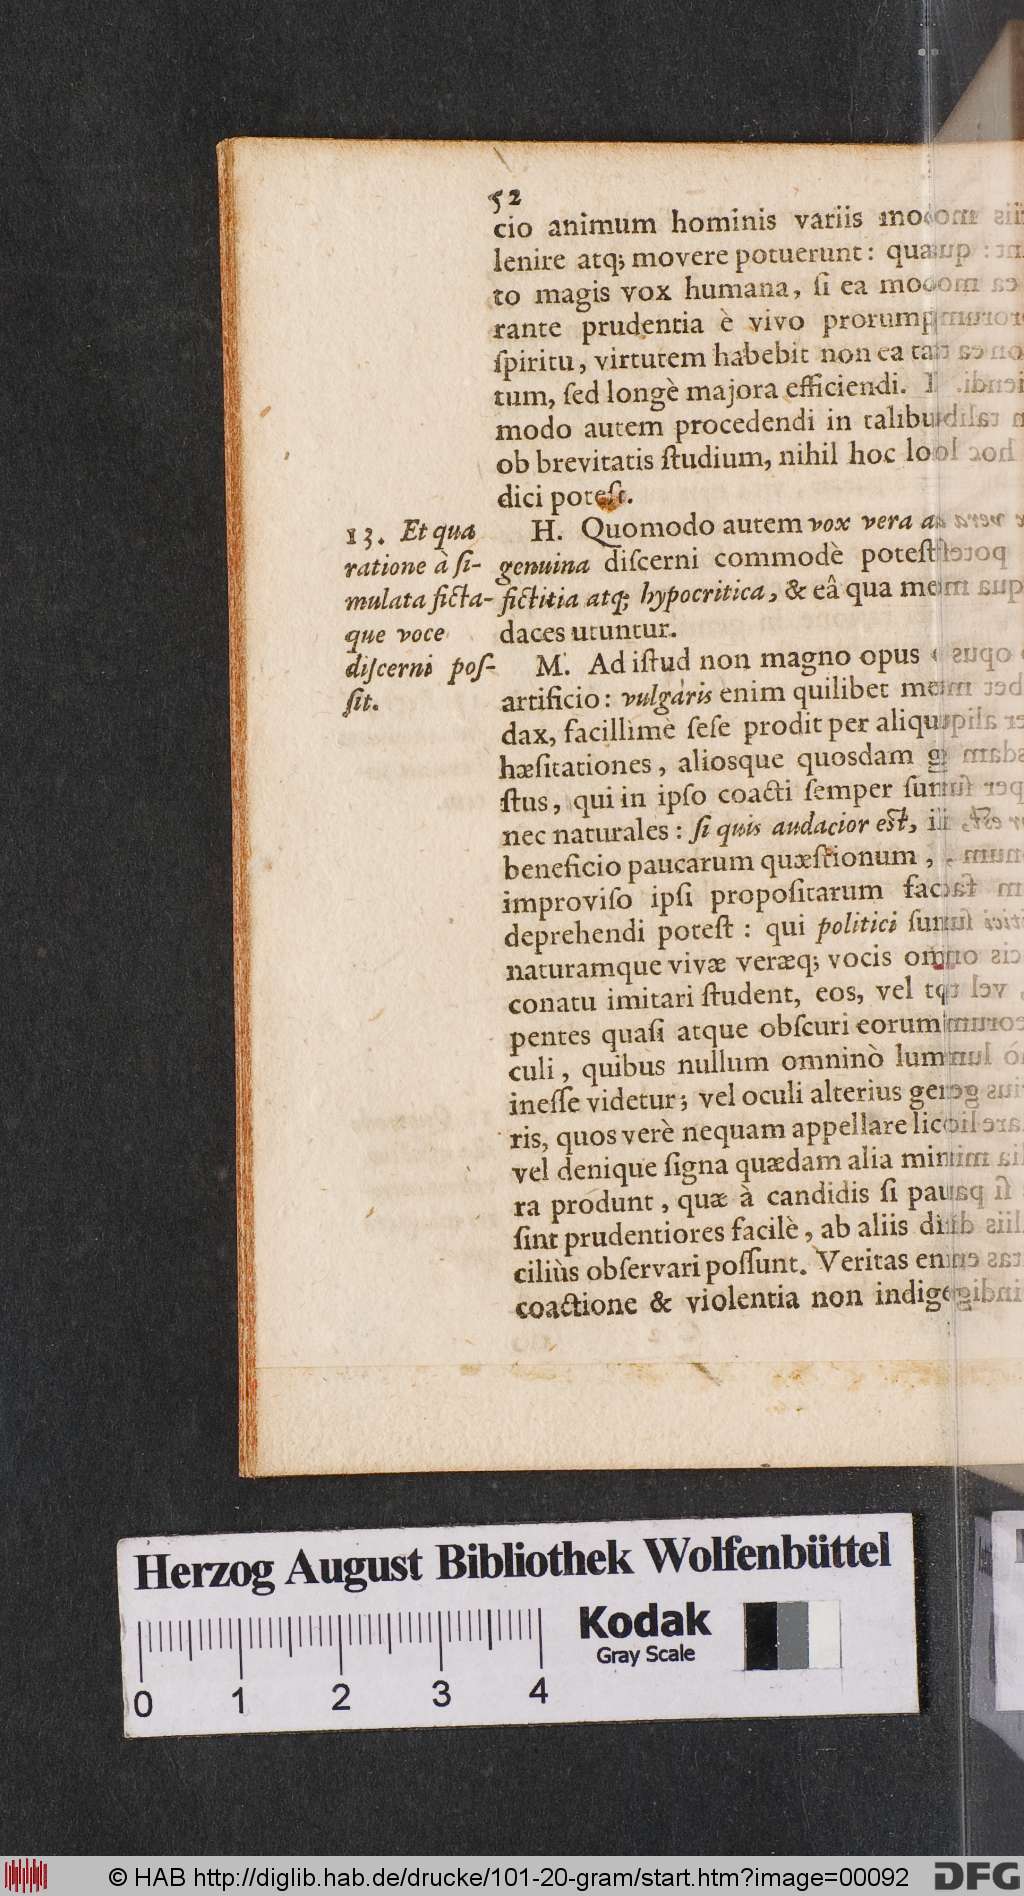 52
cio animum hominis variis
lenire atq; movere potuerunt:
to magis vox humana, ſi ea
rante prudentia è vivo
ſpiritu, virtutem habebit non ea
tum, ſed longè majora efficiendi.
modo autem procedendi in
ob brevitatis ſtudium, nihil hoc
dici poteſt.
13. Et qua
ratione à ſi-
mulata ficta-
que voce
diſcerni poſ-
ſit.
H. Quomodo autem vox vera
genuina diſcerni commodè poteſt
fictitia atq; hypocritica, & eâ qua
daces utuntur.
M. Ad iſtud non magno opus
artificio: vulgaris enim quilibet
dax, facillimè ſeſe prodit per
hæſitationes, aliosque quosdam
ſtus, qui in ipſo coacti ſemper
nec naturales: ſi quis audacior eſt,
beneficio paucarum quæſtionum,
improviſo ipſi propoſitarum
deprehendi poteſt: qui politici
naturamque vivæ veræq; vocis
conatu imitari ſtudent, eos, vel
pentes quaſi atque obſcuri eorum
culi, quibus nullum omninò
ineſſe videtur; vel oculi alterius
ris, quos verè nequam appellare
vel denique ſigna quædam alia
ra produnt, quæ à candidis ſi
ſint prudentiores facilè, ab aliis
ciliùs obſervari poſſunt. Veritas
coactione & violentia non
Herzog August Bibliothek Wolfenbüttel
Kodak
Gray Scale
0 1 2 3 4
© HAB http://diglib.hab.de/drucke/101-20-gram/start.htm?image=00092 DFG